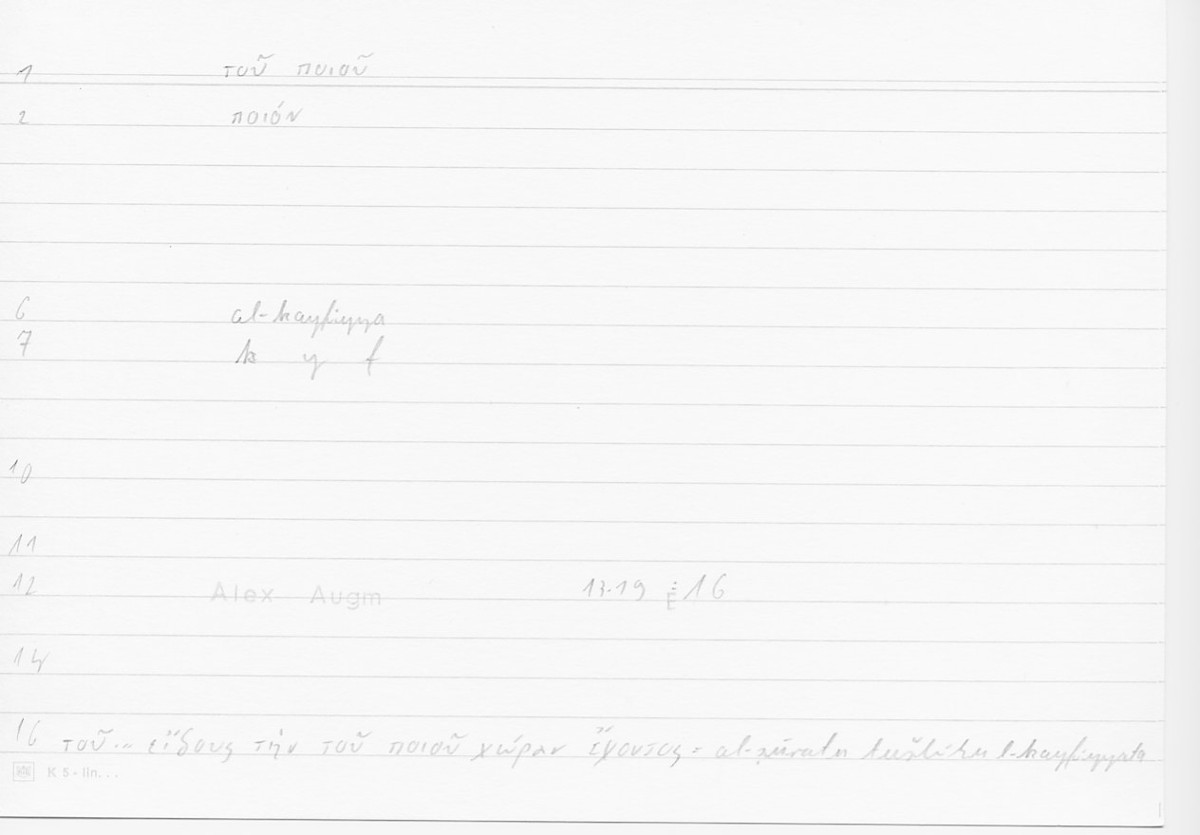 1 τοῦ ποιοῦ
2 ποιόν
6 al-kayfiyya
7 k y f
10
11
12 Alex Augm 13-19 E 16
14
16 τοῦ... εἴδους τὴν τοῦ ποιοῦ χώραν ἔχοντος = al-ṣūratu tušbihu l-kayfiyyata
K 5 - lin...